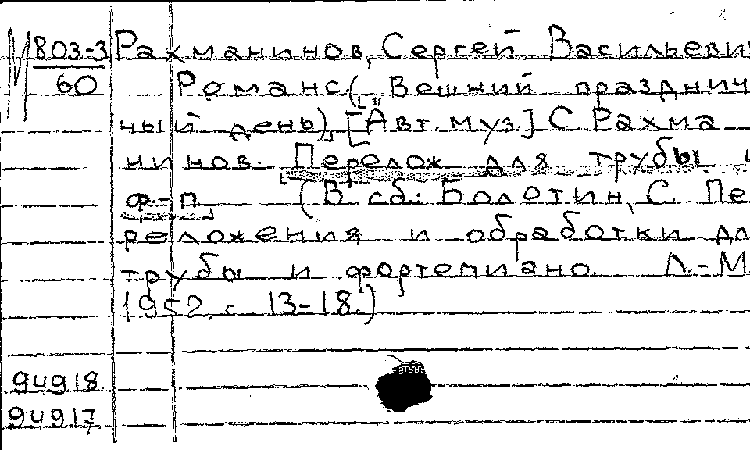 М 803-3 Рахманинов, Сергей Васильеви
60 Романс (Вешний празднич
ный день), [Авт. муз.] С Рахма
нинов. [Перелож для трубы и
ф-п] (В сб: Болотин, С. Пе
реложения и обработки дл
трубы и фортепиано Л.-М
1952. с 13-18.)
94918
94917